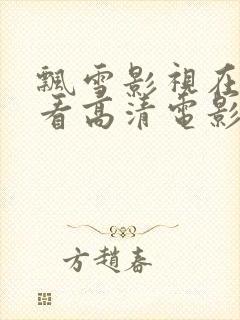 飄雪影視在
看高清電影
方趙春